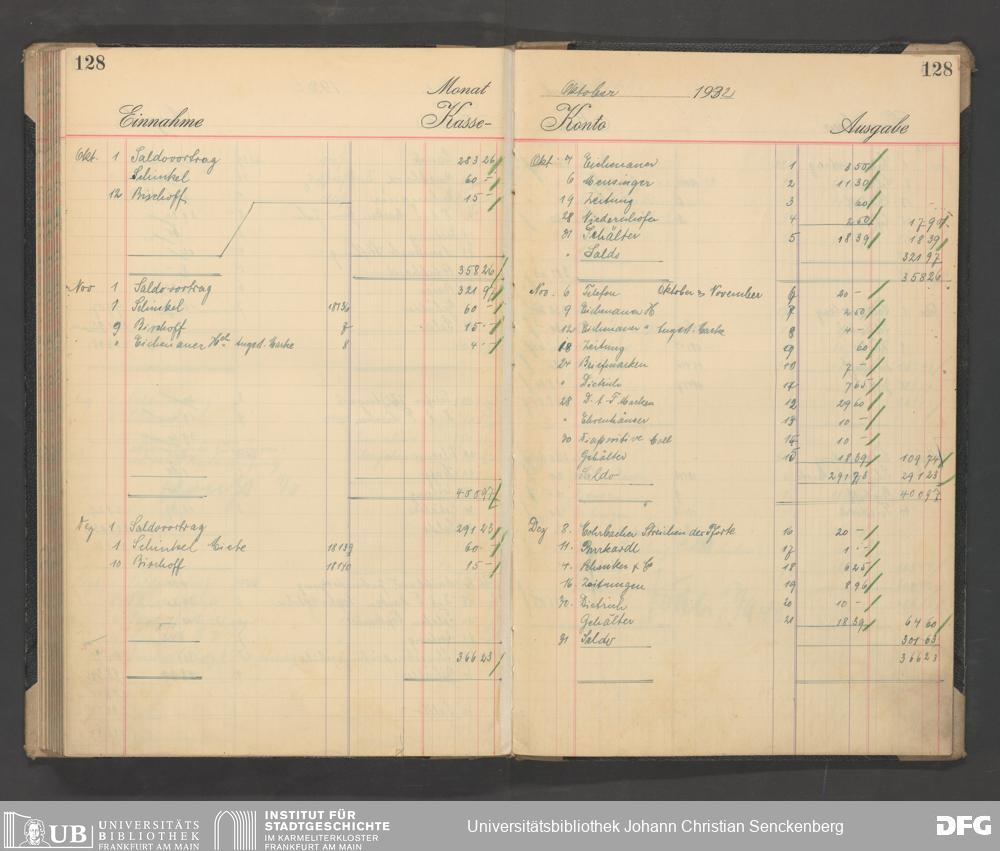 128
Monat
Einnahme Kasse-
Okt. 1 Saldovortrag 283 26
Schinkel 60 -
12 Bischoff 15 -
358 26
Nov 1 Saldovortrag 321 97
1. Schinkel 18136 60 -
9 Bischoff 7 15 -
" Eichenauer 8 4 -
400 97
Dez 1 Saldovortrag 291 23
1 Schinkel Miete 18139 60 -
10 Bischoff 18140 15 -
366 23
128
Oktober 1932
Konto Ausgabe
Okt 7 Eichenauer 1 3 50
6 Mensinger 2 11 30
19 Zeitung 3 60
28 Niedernhöfer 4 2 50 17 90
31 Gehälter 5 18 39 18 39
" Saldo 321 97
358 26
Nov. 6 Telefon Oktober & November 6 20 -
9 Eichenauer H 7 2 50
12 Eichenauer " 8 4 -
18 Zeitung 9 60
24 Briefmarken 10 7 -
" 11 7 65
28 Marken 12 29 60
" 13 10 -
30 14 10 -
Gehälter 15 18 39 109 74
Saldo 291 23
400 97
Dez 8. Streichen der Pforte 16 20 -
11. Burkardt 17 1 -
4. Schenker & Co 18 6 25
16. Zeitungen 19 8 96
30. Dietrich 20 10 -
Gehälter 21 18 39 64 60
31 Saldo 301 63
366 23
UB UNIVERSITÄTS
BIBLIOTHEK
FRANKFURT AM MAIN
INSTITUT FÜR
STADTGESCHICHTE
IM KARMELITERKLOSTER
FRANKFURT AM MAIN
Universitätsbibliothek Johann Christian Senckenberg
DFG